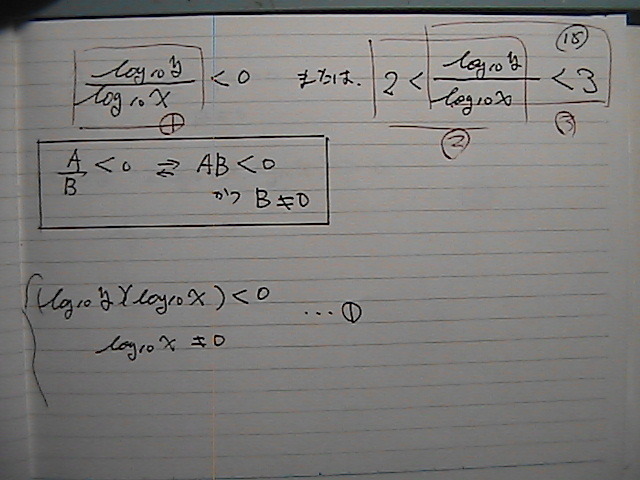 ⑮
log₁₀y/log₁₀x < 0 または. 2 < log₁₀y/log₁₀x < 3
① ② ③
A/B < 0 ⇄ AB < 0
かつ B ≠ 0
(log₁₀y)(log₁₀x) < 0 … ①
log₁₀x ≠ 0